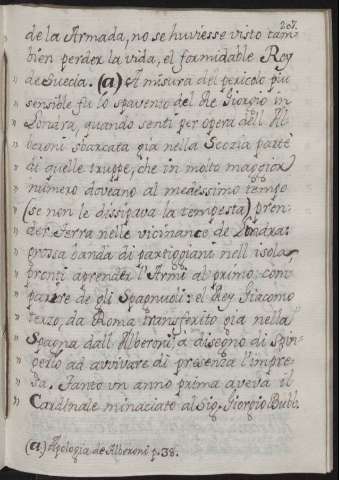 207.
de la Armada, no se huviesse visto tam-
bien perder la vida, el formidable Rey
" de Suecia. (a) A misura del pericolo piu
" sensible fu lo spavento del Re Giorgio in
" Londra, quando senti per opera dell Al-
" beroni sbarcata gia nella Scozia parte
" di quelle truppe, che in molto maggior
" numero doveano al medessimo tempo
" (se non le dissipava la tempesta) pren-
" der terra nelle vicinance de Londra:
" grossa banda di partiggiani nell isola,
" pronti a prender l'Armi al primo com-
" parire de gli Spagnuoli: el Rey Giacomo
" terzo, da Roma transferito gia nella
" Spagna dall Alberoni, a disegno di Spin-
" gerlo ad avvivare di presenza l'impre-
" sa. Tanto un anno prima aveva il
" Cardinale minaciato al Sig. Giorgio Bubb.
(a) Apologia de Alberoni p. 38.